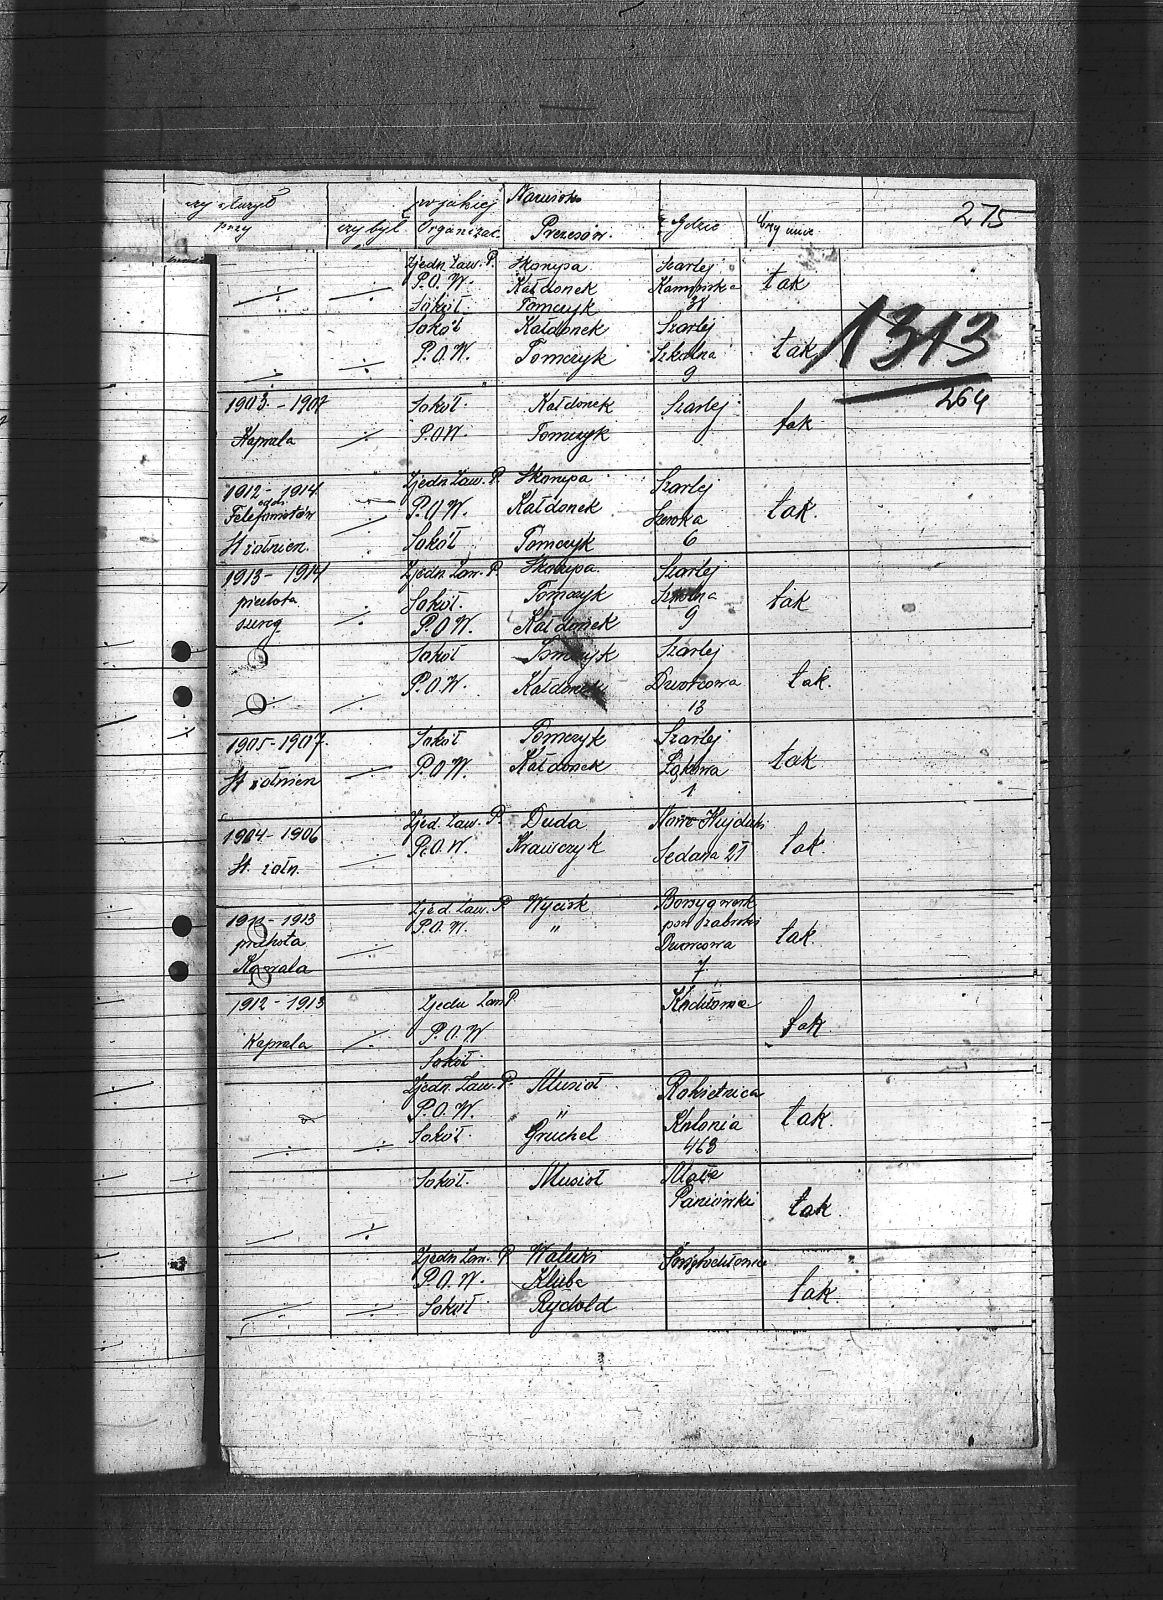 czy służył w jakiej Nazwisko 275
przy czy był Organizac. Prezesów. Gdzie Czy umie
Zjedn. Zaw. P. Skorupa Szarlej
÷ ÷ P.O.W. Kałdonek tak
Sokół Tomczyk
Sokół Kałdonek Szarlej 1313
÷ ÷ P.O.W. Tomczyk Szkolna tak
9
1903 - 1907 Sokół Kałdonek Szarlej 264
Kaprala ÷ P.O.W. Tomczyk tak
1912 - 1914 Zjedn. Zaw. P. Skorupa Szarlej
P.O.W. Kałdonek tak.
St żołnier. ÷ Sokół Tomczyk 6
1913 - 1914 Zjedn. Zaw. P. Skorupa Szarlej
piechota Sokół. Tomczyk Szkolna tak
÷ P.O.W. Kałdonek 9
Sokół Tomczyk Szarlej
÷ P.O.W. Kałdonek Dworcowa tak.
13
1905 - 1907. Sokół Tomczyk Szarlej
St żołnier ÷ P.O.W. Kałdonek Łąkowa tak
1
1904 - 1906 Zjed. Zaw. P. Duda Nowe Hajduki
St. żołn. ÷ P.O.W. Krawczyk Sedana 21 tak.
1913 Zjed. Zaw. P. Wycisk Borsygwerk
piechota P.O.W. " pow. Zabrski
Kaprala ÷ Dworcowa tak.
7
1912 - 1913 Zjedn Zaw P
Kaprala ÷ P.O.W tak
Sokół
Zjedn. Zaw. P. Musioł Rokietnica
P.O.W. " Kolonia tak.
÷ ÷ Sokół. Gruchel 463
Sokół. Musioł Małe
÷ ÷ Paniówki tak
Zjedn Zaw. P Świętochłowice
P.O.W. Kluba
÷ ÷ Sokół Rydold tak.